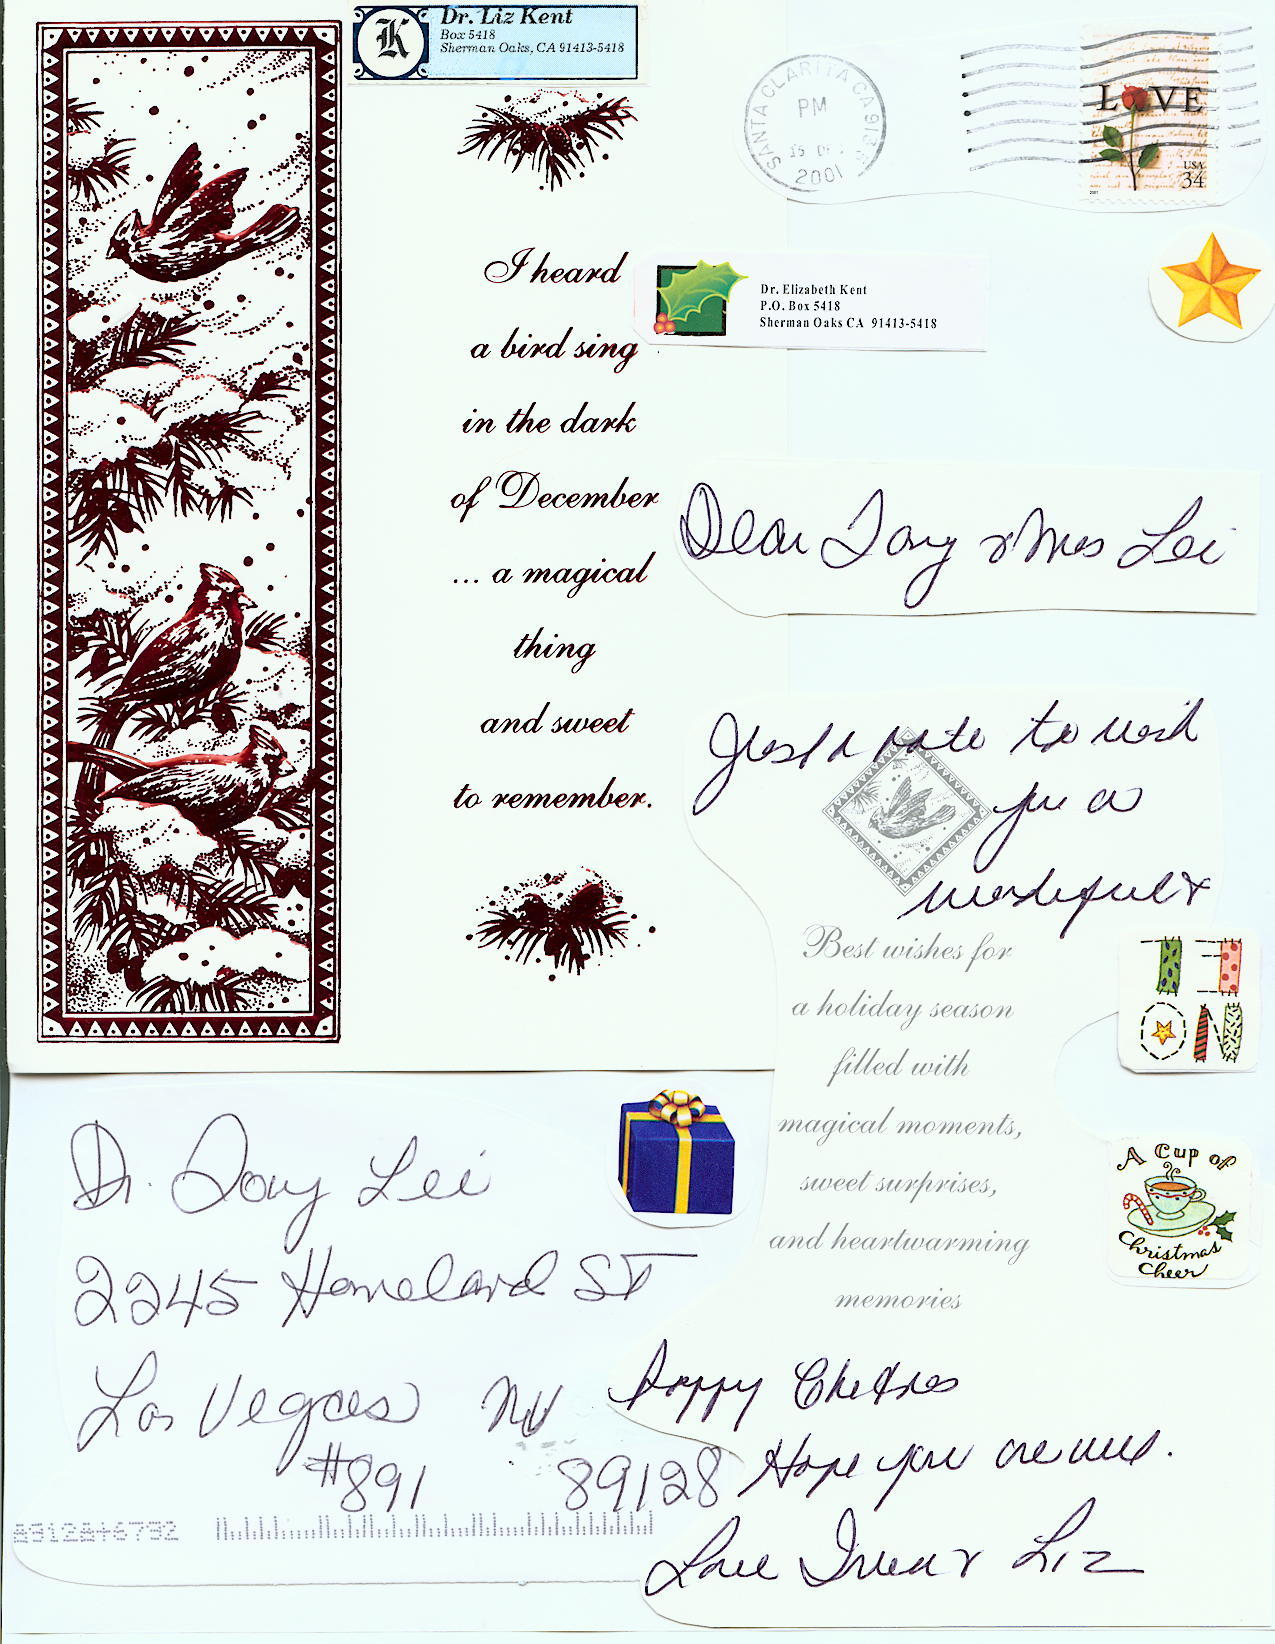 K
Dr. Liz Kent
Box 5418
Sherman Oaks, CA 91413-5418
SANTA CLARITA CA 913
PM
15
2001
LOVE
USA
34
2001
I heard
a bird sing
in the dark
of December
... a magical
thing
and sweet
to remember.
Dr. Elizabeth Kent
P.O. Box 5418
Sherman Oaks CA 91413-5418
Dear Tony & Mrs Lei
Just a note to wish
you a
wonderful &
Best wishes for
a holiday season
filled with
magical moments,
sweet surprises,
and heartwarming
memories
A Cup of
Christmas
Cheer
Happy
Hope you are well.
Love & Liz
Dr. Tony Lei
2245 Homeland ST
Las Vegas NV
#891 89128